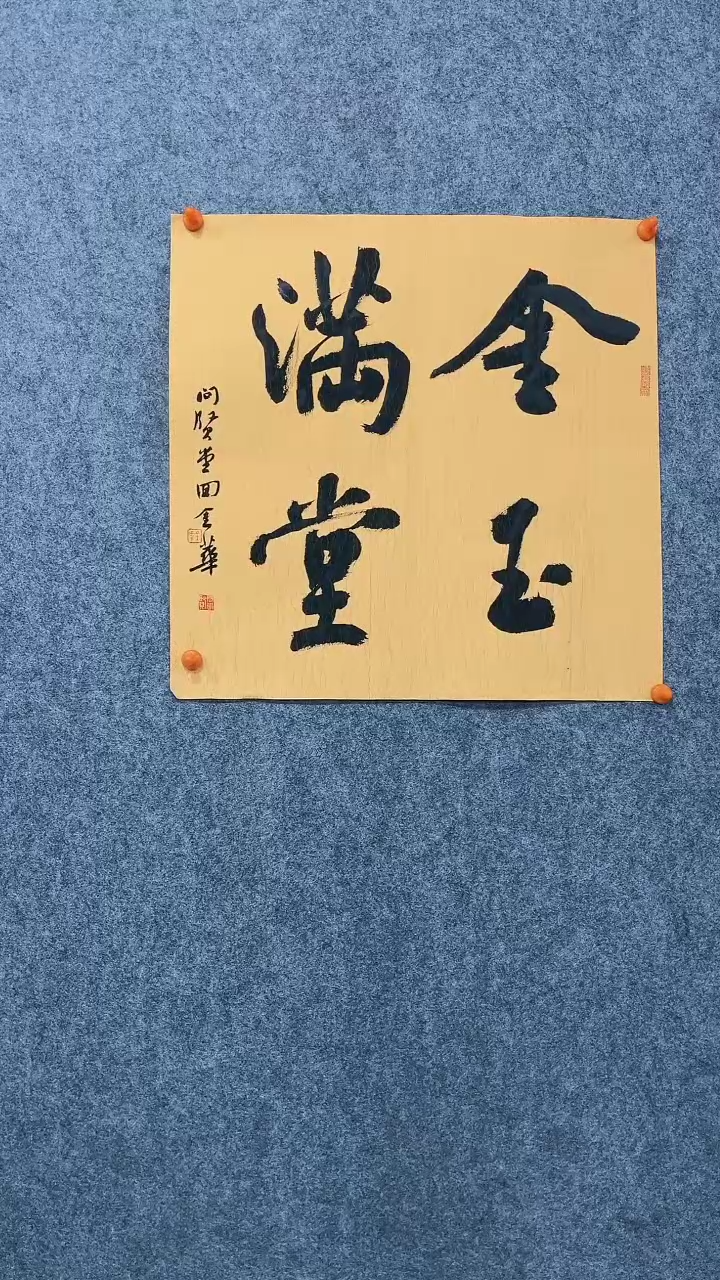 金玉
满堂
问贤堂回金华